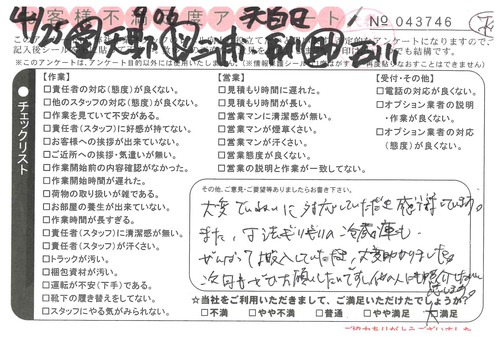 お客様不満足度アンケート № 043746
天白区
※このアンケートは、アンケート目的以外には使用いたしません。
チェックリスト
【作業】
□責任者の対応(態度)が良くない。
□他のスタッフの対応(態度)が良くない。
□作業を見ていて不安がある。
□責任者(スタッフ)に好感が持てない。
□お客様への挨拶が出来ていない。
□ご近所への挨拶・気遣いが無い。
□作業開始前の内容確認がなかった。
□作業開始時間が遅れた。
□荷物の取り扱いが雑である。
□お部屋の養生が出来ていない。
□作業時間が長すぎる。
□責任者(スタッフ)に清潔感が無い。
□責任者(スタッフ)が汗くさい。
□トラックが汚い。
□梱包資材が汚い。
□運転が不安(下手)である。
□靴下の履き替えをしてない。
□スタッフにやる気がみられない。
【営業】
□見積もり時間に遅れた。
□見積もり時間が長い。
□営業マンに清潔感が無い。
□営業マンが煙草くさい。
□営業マンが汗くさい。
□営業態度が良くない。
□営業の説明と作業が一致してない。
【受付・その他】
□電話の対応が良くない。
□オプション業者の説明
・作業が良くない。
□オプション業者の対応
(態度)が良くない。
その他、ご意見・ご要望等ありましたらお書き下さい。
大変ていねいに対応していただき感謝しています。
また、寸法ギリギリの冷蔵庫も
がんばって搬入していただき、大変助かりました。
次回もぜひお願いしたいですし、他の人にも紹介したいと
思います。
☆当社をご利用いただきまして、ご満足いただけたでしょうか?
□不満 □やや不満 □普通 □やや満足 □大満足
ご協力ありがとうございました